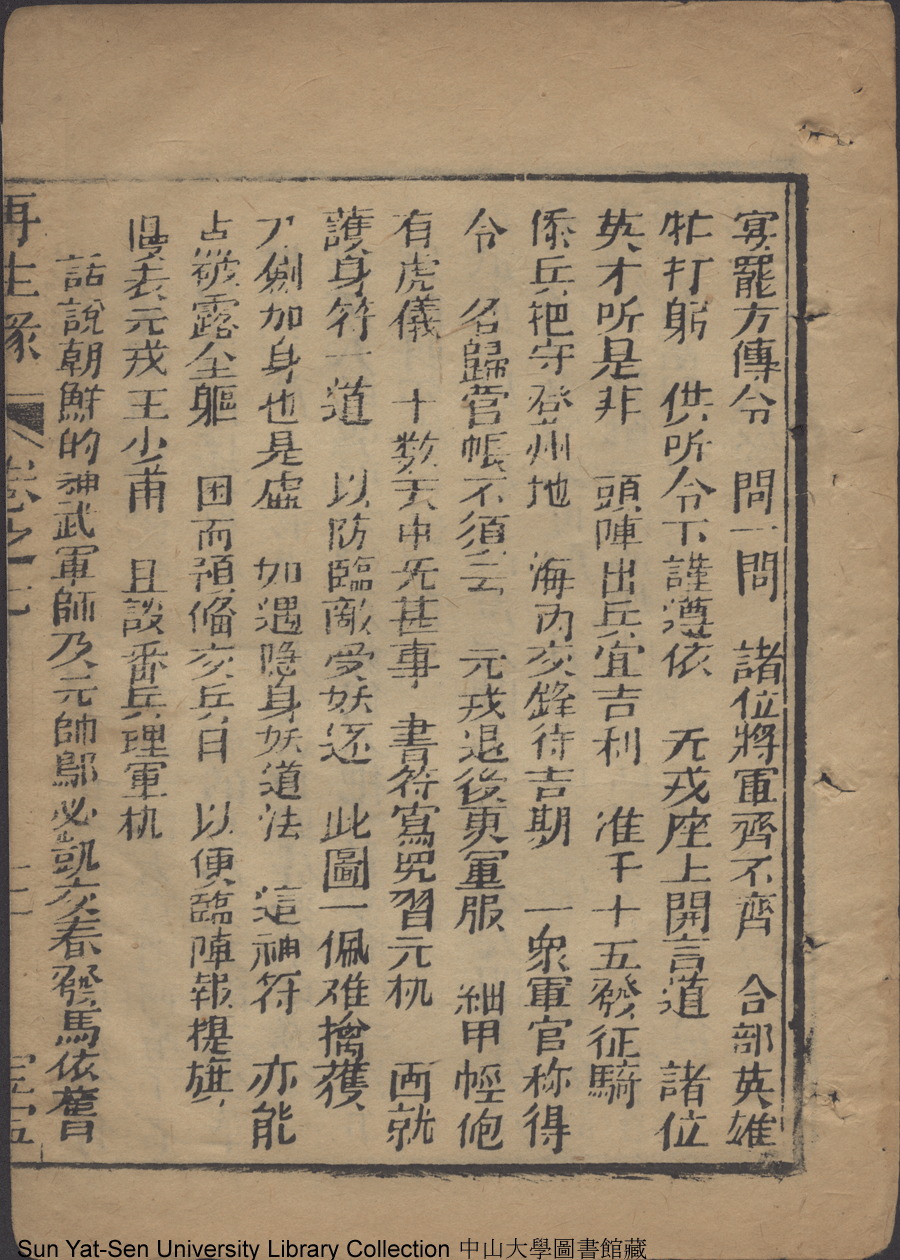 宴罷方傳令 問一問 諸位將軍齊不齊 合部英雄
忙打躬 供听令下謹遵依 元戎座上開言道 諸位
英才听是非 頭陣出兵宜吉利 准于十五發征騎
倭兵把守登州地 海內交鋒待吉期 一衆軍官称得
令 名歸营帳不須云 元戎退後更軍服 細甲輕袍
有虎儀 十数天中无甚事 書符寫咒習元机 画就
護身符一道 以防臨敵受妖迷 此圖一佩难擒獲
刀劍加身也是虛 如遇隐身妖道法 這神符 亦能
点破露全軀 因而預俻交兵日 以便臨陣報提旗
慢表元戎王少甫 且談番兵理軍机
話說朝鮮的神武軍師乃元帥鄔必凱交春發馬依舊
再生緣 卷之七
Sun Yat-Sen University Library Collection 中山大學圖書館藏